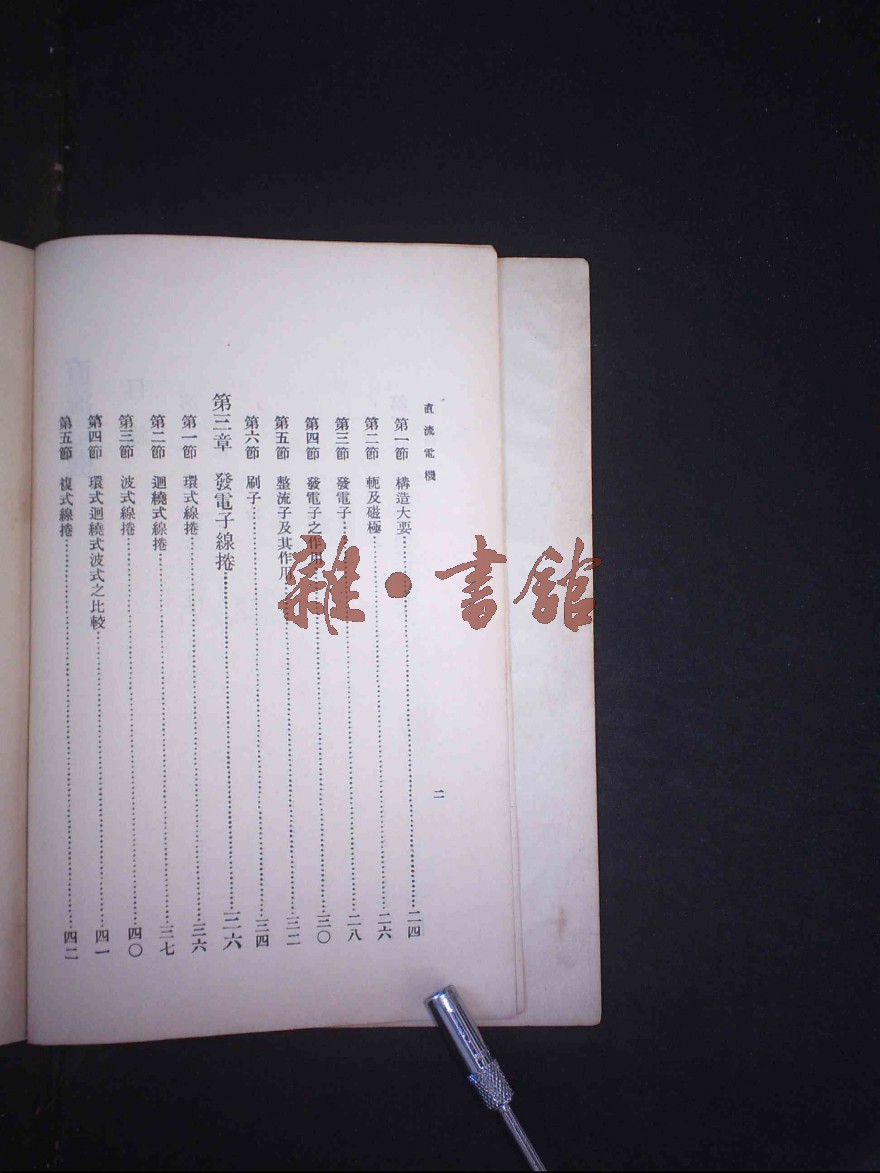 直流電機
二
第一節　構造大要……二四
第二節　軛及磁極……二六
第三節　發電子……二八
第四節　發電子之作用……三〇
第五節　整流子及其作用……三二
第六節　刷子……三四
第三章　發電子線捲……三六
第一節　環式線捲……三六
第二節　迴繞式線捲……三七
第三節　波式線捲……四〇
第四節　環式迴繞式波式之比較……四一
第五節　複式線捲……四二
雜·書館